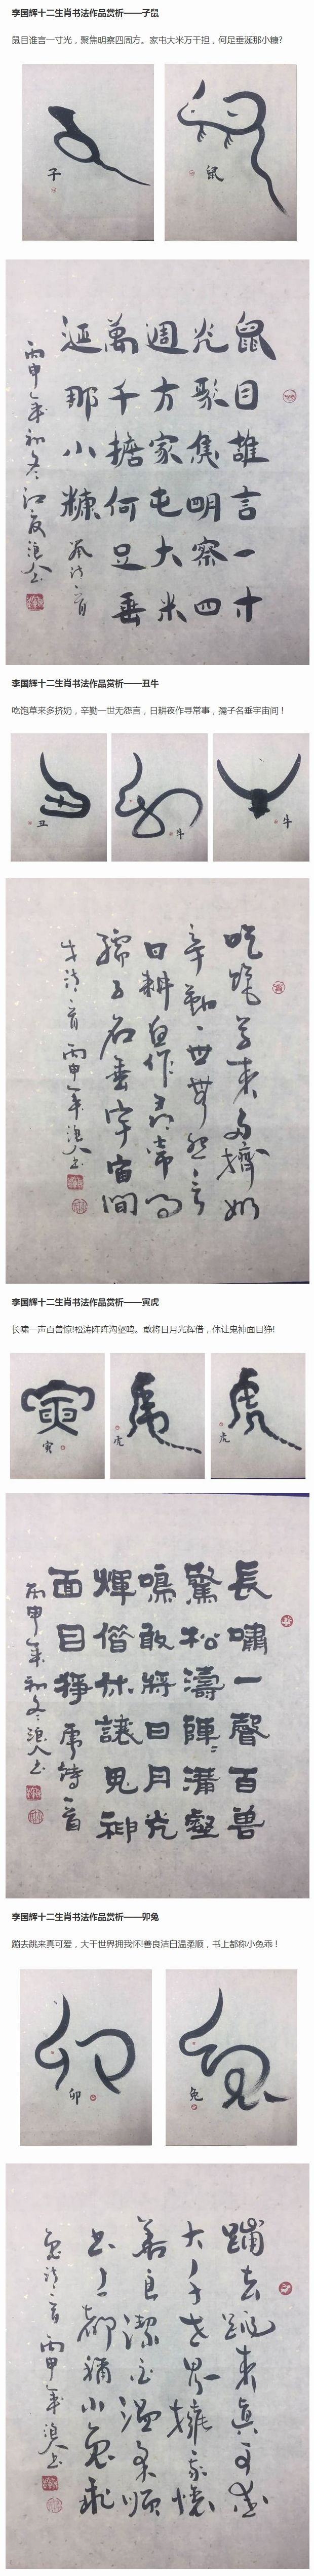 李国辉十二生肖书法作品赏析——子鼠
鼠目谁言一寸光，聚焦明察四周方。家屯大米万千担，何足垂涎那小糠?
子
鼠
鼠目誰言一寸
光聚焦明察四
週方家屯大米
萬千擔何足垂
涎那小糠 鼠诗一首
丙申年初冬江夏浪人书
李国辉十二生肖书法作品赏析——丑牛
吃饱草来多挤奶，辛勤一世无怨言，日耕夜作寻常事，孺子名垂宇宙间！
丑
牛
牛
吃饱草来多擠奶
辛勤一世無怨言
日耕夜作尋常事
孺子名垂宇宙間
牛诗一首丙申年浪人书
李国辉十二生肖书法作品赏析——寅虎
长啸一声百兽惊!松涛阵阵沟壑鸣。敢将日月光辉借，休让鬼神面目狰!
寅
虎
虎
長嘯一聲百兽
驚松濤陣陣溝壑
鳴敢將日月光
輝借休讓鬼神
面目狰 虎詩一首
丙申年初冬浪人书
李国辉十二生肖书法作品赏析——卯兔
蹦去跳来真可爱，大千世界拥我怀!善良洁白温柔顺，书上都称小兔乖！
卯
兔
蹦去跳来真可爱
大千世界擁我懷
善良潔白溫柔順
书上都稱小兔乖
兔诗一首丙申年浪人书